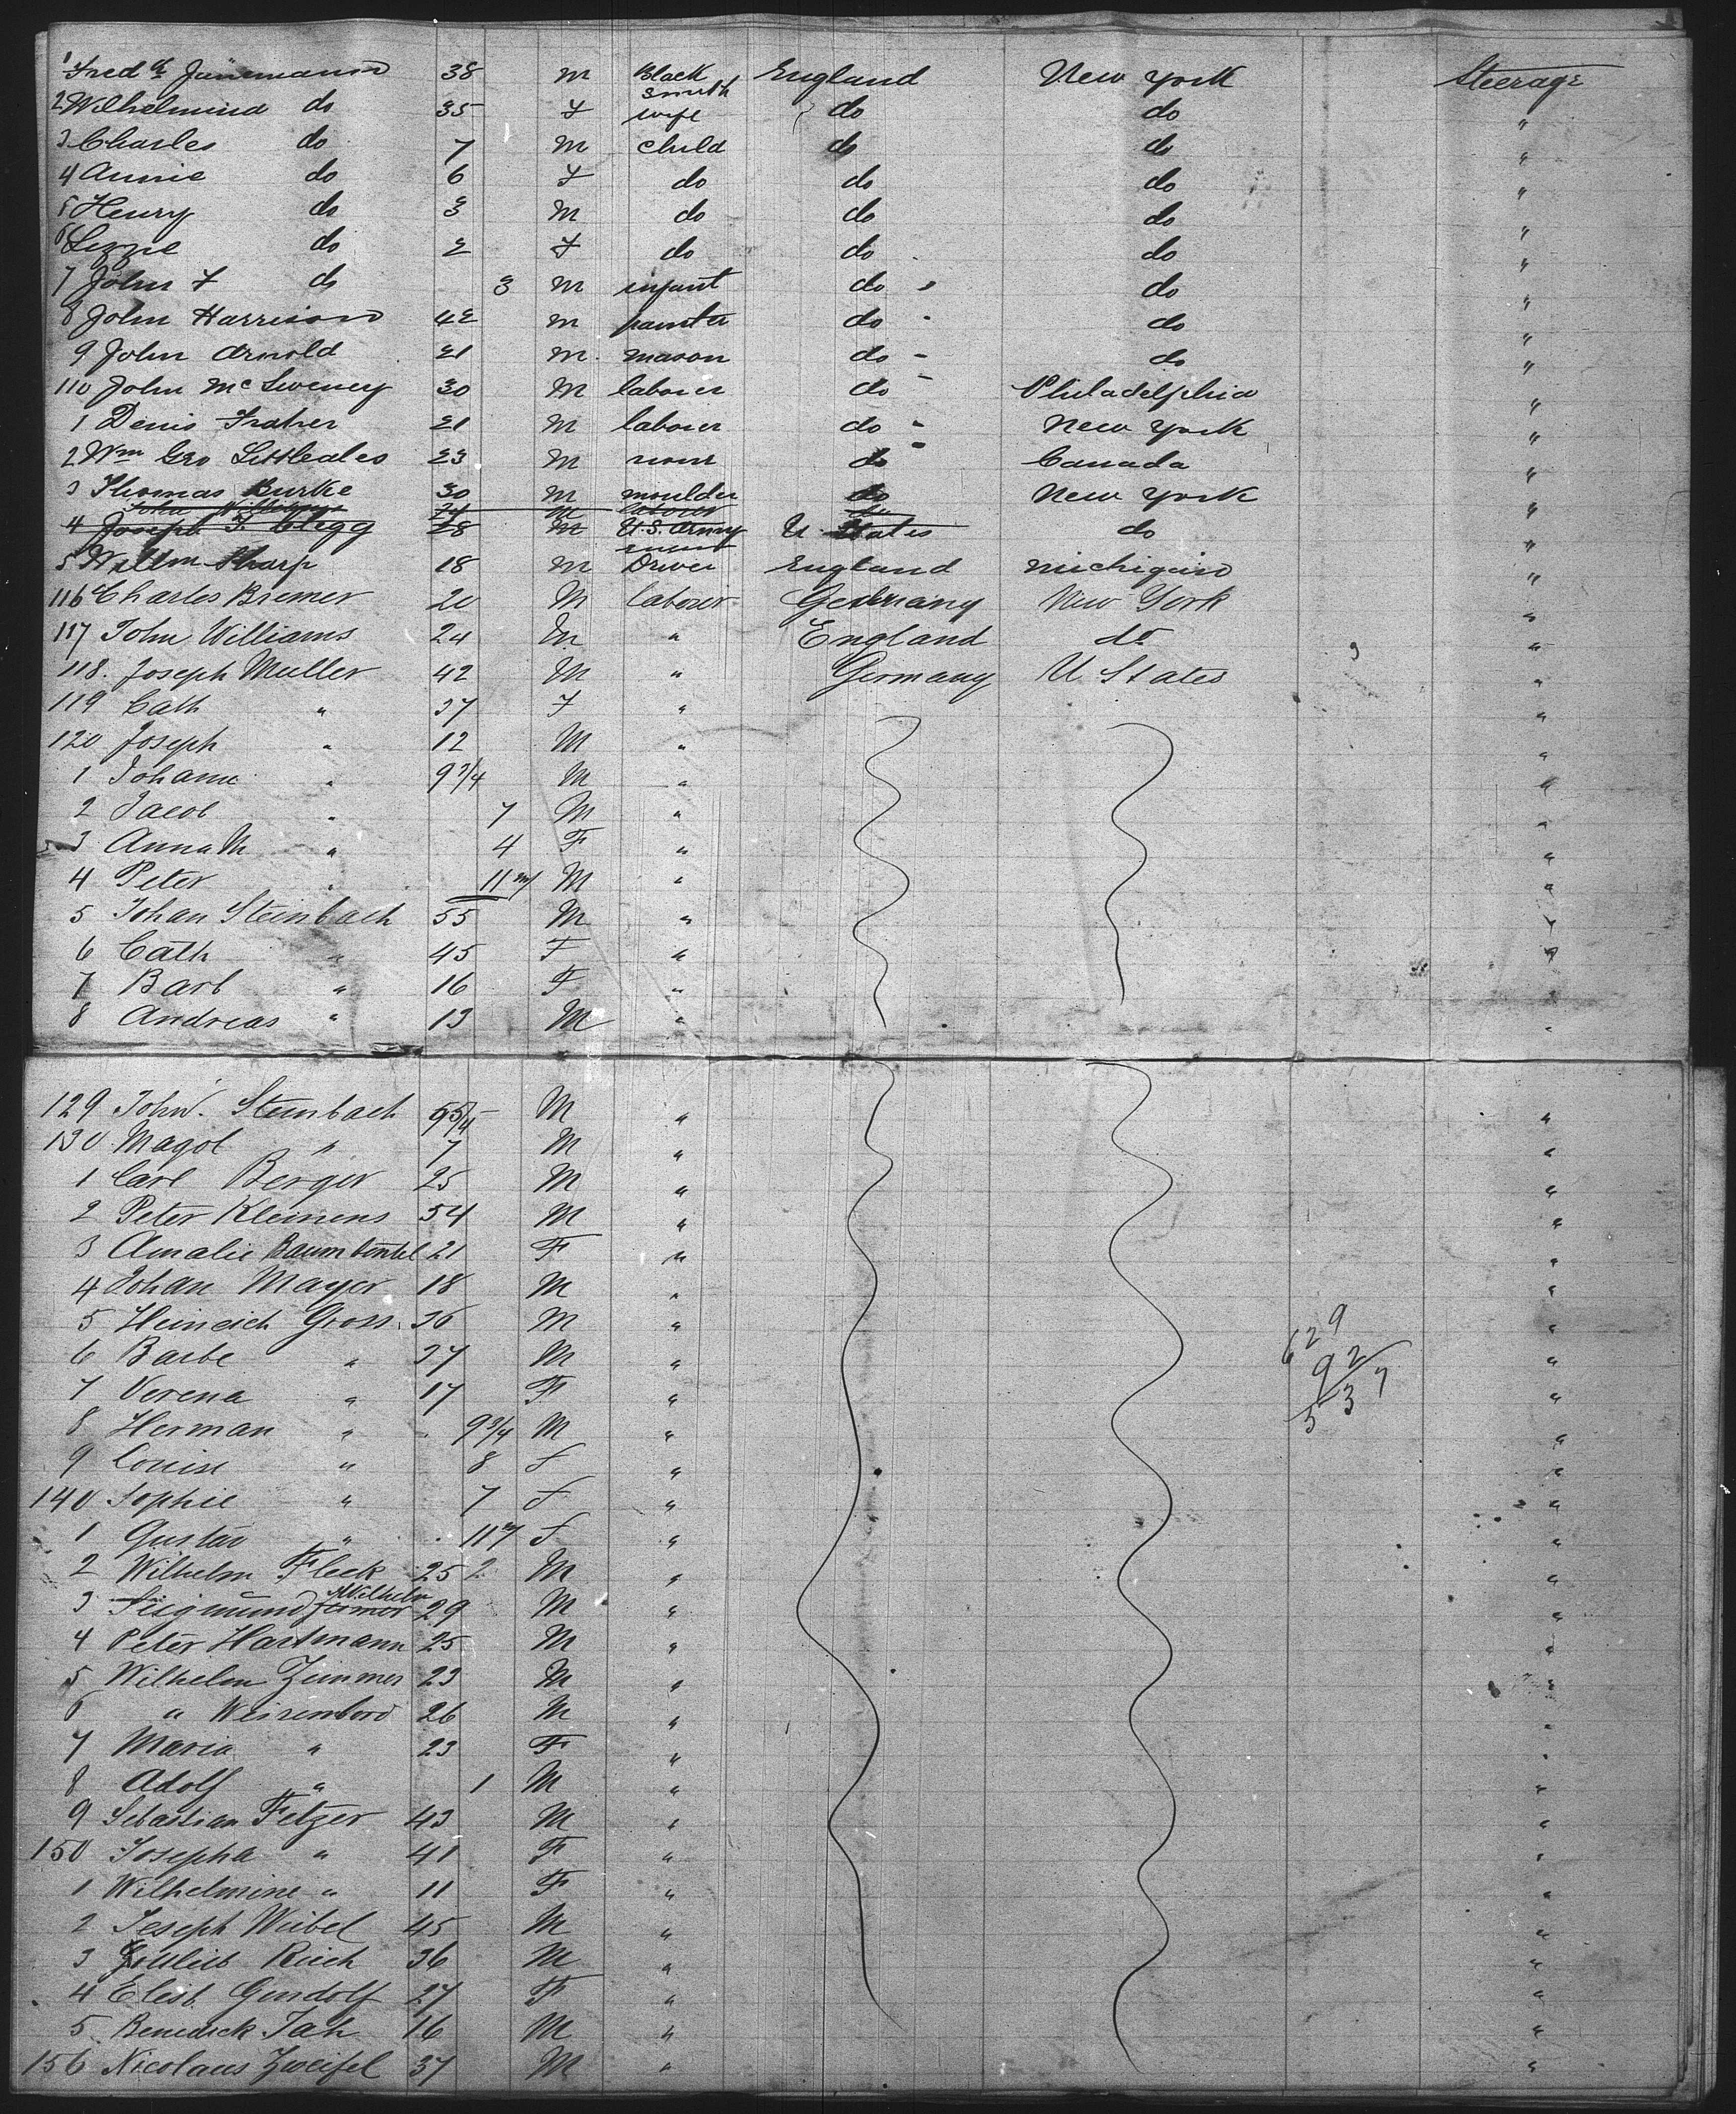 1 Fredk Junemann 38 M Blacksmith England New York Steerage
2 Wilhelmina do 35 F wife do do "
3 Charles do 7 M child do do "
4 Annie do 6 F do do do "
5 Henry do 3 M do do do "
6 Lizzie do 2 F do do do "
7 John F do 3 M infant do do "
8 John Harrison 42 M painter do do "
9 John Arnold 21 M mason do do "
110 John McSweeney 30 M laborer do Philadelphia "
1 Denis 21 M laborer do New York "
2 Wm Geo Littleales 23 M none do Canada "
3 Thomas Burke 30 M moulder do New York "
John Williams 24 M laborer do
4 Joseph F. Clegg 28 M U.S. Army U States do "
5 Willm Sharp 18 M Driver England Michigan "
116 Charles Bremer 20 M laborer Germany New York "
117 John Williams 24 M " England do "
118. Joseph Muller 42 M " Germany U States "
119 Cath " 37 F " "
120 Joseph " 12 M " "
1 Johann " 9 3/4 M " "
2 Jacob " 7 M " "
3 Anna M " 4 F " "
4 Peter " 11 m M " "
5 Johan Steinbach 55 M " "
6 Cath " 45 F " "
7 Barb " 16 F " "
8 Andreas " 13 M " "
129 John. Steinbach M " "
130 Magol " 7 M " "
1 Carl Berger 25 M " "
2 Peter Kleinens 54 M " "
3 Amalie 21 F " "
4 Johan Mayer 18 M " "
5 Heinrich Gross 36 M " "
629
6 Barbe " 37 M " "
92
7 Verena " 17 F " "
537
8 Herman " 9 3/4 M " "
9 Louise " 8 F " "
140 Sophie " 7 F " "
1 Gustav " 11 m F " "
2 Wilhelm Fleck 25 2 M " "
3 Siegmund Wilhelm 29 M " "
4 Peter Hartmann 25 M " "
5 Wilhelm Zimmer 23 M " "
6 " Weirenbord 26 M " "
7 Maria " 23 F " "
8 Adolf " 1 M " "
9 Sebastian Fetzer 43 M " "
150 Josepha " 41 F " "
1 Wilhelmine " 11 F " "
2 Joseph Weibel 45 M " "
3 Gottlieb Reich 36 M " "
4 Elisb. Gendolf 27 F " "
5 Benedick Jah 16 M " "
156 Nicolaus Zweifel 37 M " "